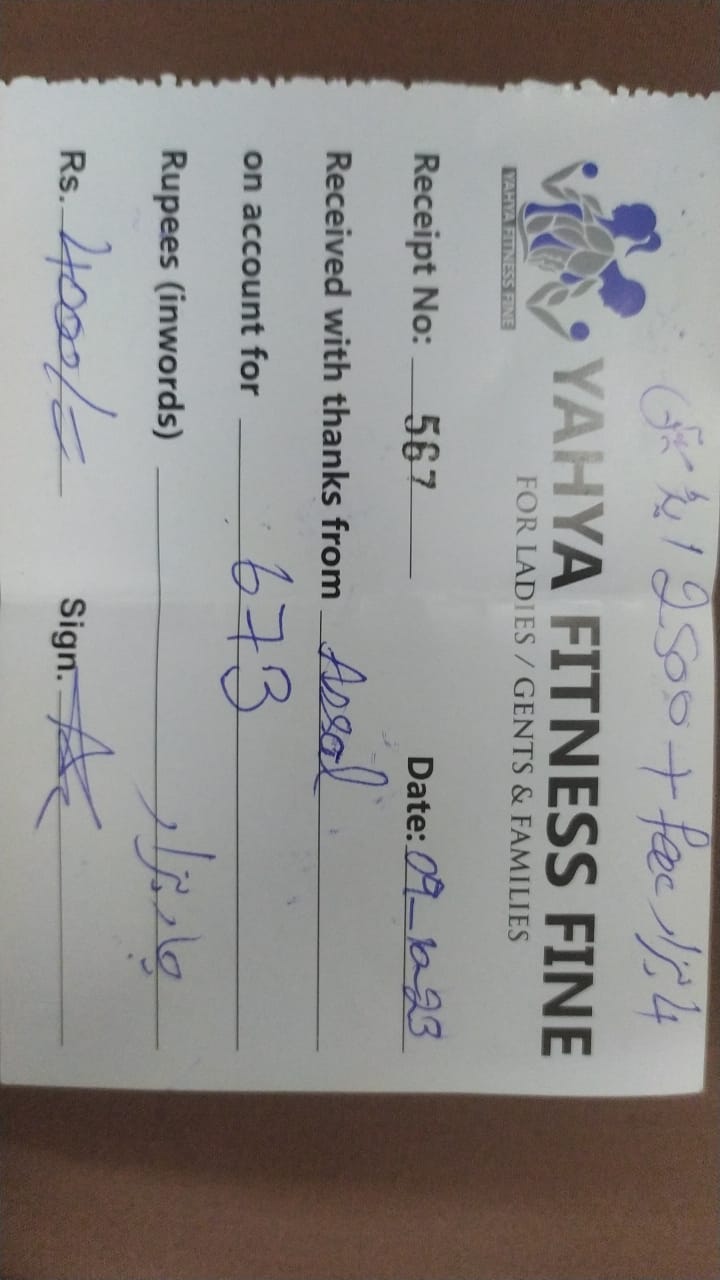 2500 + 4 ہزار
YAHYA FITNESS FINE
YAHYA FITNESS FINE
FOR LADIES / GENTS & FAMILIES
Receipt No: 567 Date: 09-10-23
Received with thanks from
on account for 673
Rupees (inwords) چار ہزار
Rs. 4000/= Sign.